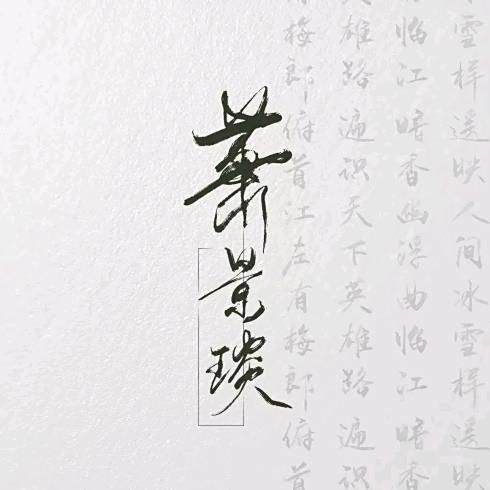 雪样遥映人间冰雪样遥映
临江暗香幽浮曲临江暗香
英雄路遍识天下英雄路遍识
有梅郎俯首江左有梅郎俯首
萧景琰